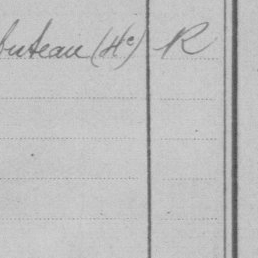 buteau (Hte) R